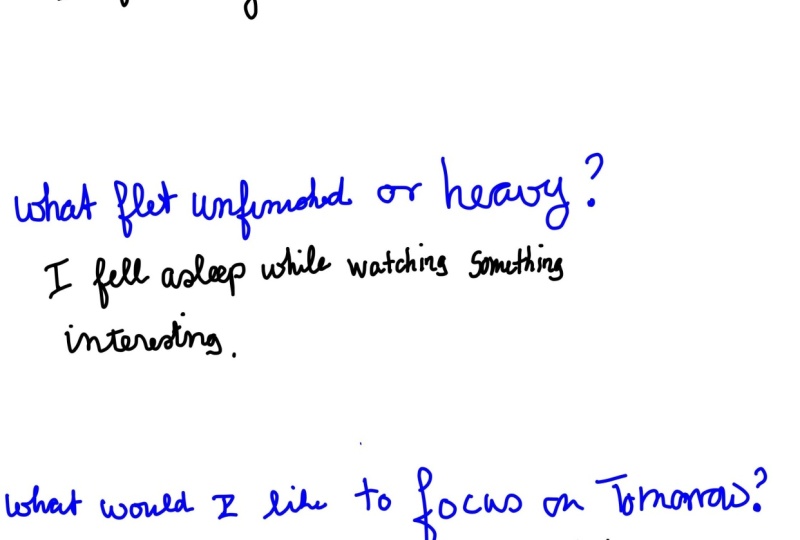 What flet unfinished or heavy?
I fell asleep while watching something
interesting.
What would I like to focus on Tomorrow?